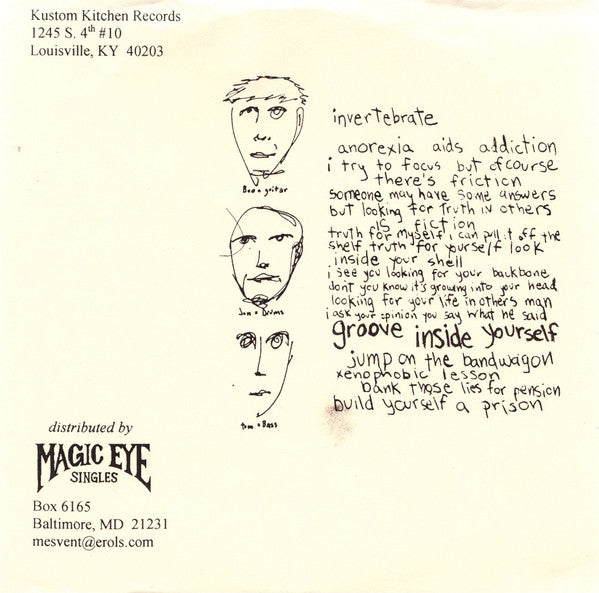 Kustom Kitchen Records
1245 S. 4th #10
Louisville, KY 40203
Boo • guitar
Jon • Drums
Tom • Bass
invertebrate
anorexia aids addiction
i try to focus but ofcourse
there's friction
someone may have some answers
but looking for Truth in others
is fiction
truth for myself i can pull it off the
shelf truth for yourself look
inside your shell
i see you looking for your backbone
dont you know it's growing into your head
looking for your life in others man
i ask your opinion you say what he said
groove inside yourself
jump on the bandwagon
xenophobic lesson
bank those lies for pension
build yourself a prison
distributed by
MAGIC EYE
SINGLES
Box 6165
Baltimore, MD 21231
mesvent@erols.com